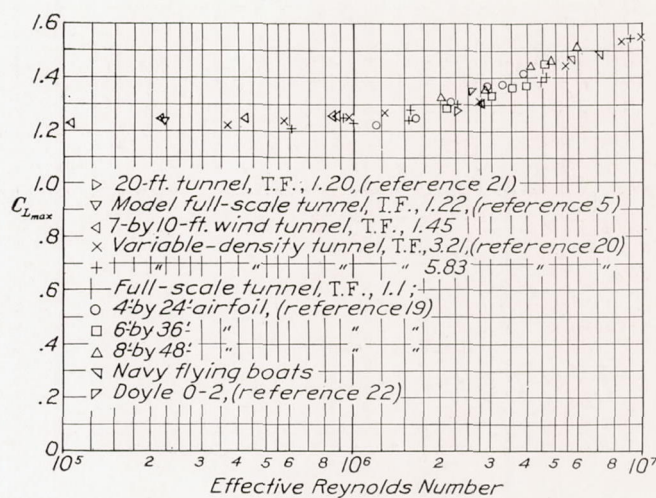 1.6
1.4
1.2
1.0
C_Lmax
.8
.6
.4
.2
0
▷ 20-ft. tunnel, T.F., 1.20, (reference 21)
▽ Model full-scale tunnel, T.F., 1.22, (reference 5)
◁ 7-by 10-ft. wind tunnel, T.F., 1.45
× Variable-density tunnel, T.F., 3.21, (reference 20)
+ " " " " 5.83 " "
Full-scale tunnel, T.F., 1.1;
○ 4'-by 24'-airfoil, (reference 19)
□ 6'-by 36'- " " "
△ 8'-by 48'- " " "
Navy flying boats
Doyle O-2, (reference 22)
10⁵ 2 3 4 5 6 8 10⁶ 2 3 4 5 6 8 10⁷
Effective Reynolds Number